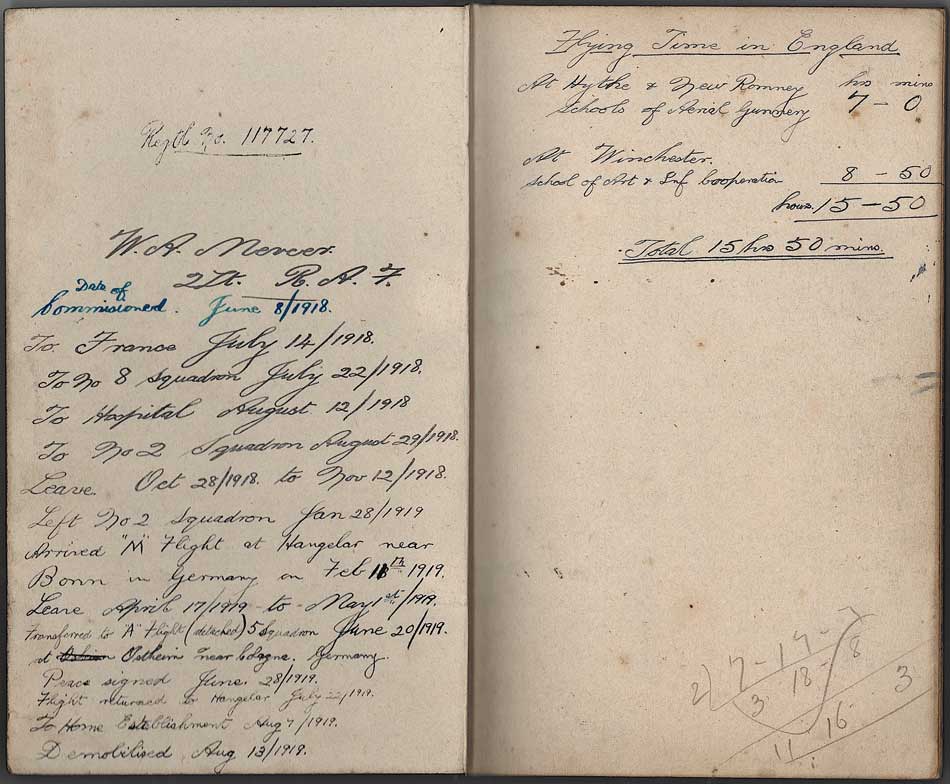 Regtl No. 117727.
W. A. Mercer.
2Lt. R. A. F.
Date of
Commisioned. June 8/1918.
To France July 14/1918.
To No 8 Squadron July 22/1918.
To Hospital August 12/1918
To No 2 Squadron August 29/1918.
Leave. Oct 28/1918. to Nov 12/1918.
Left No 2 Squadron Jan 28/1919
Arrived "M" Flight at Hangelar near
Bonn in Germany on Feb 18th 1919.
Leave April 17/1919 to May 1st/1919.
Transferred to "A" Flight (detached) 5 Squadron June 20/1919.
at Ostheim near Cologne. Germany.
Peace signed June. 28/1919.
Flight returned to Hangelar July 22/1919.
To Home Establishment Aug 7/1919.
Demobilised Aug 13/1919.
Flying Time in England
At Hythe & New Romney hrs mins
Schools of Aerial Gunnery 7 - 0
At Winchester.
School of Art & Inf Cooperation 8 - 50
hours. 15 - 50
Total 15 hrs 50 mins.
2) 7 - 17 - 7
3 18 - 8
11 - 16 3